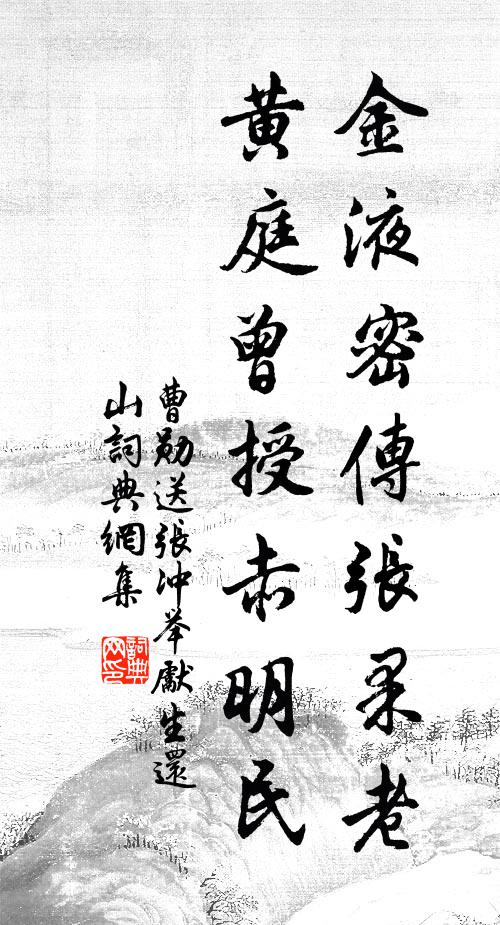 金液密傳張果老
黃庭曾授赤明民
曹勛送張沖舉獻生還
山詞典網集
詞典
网印